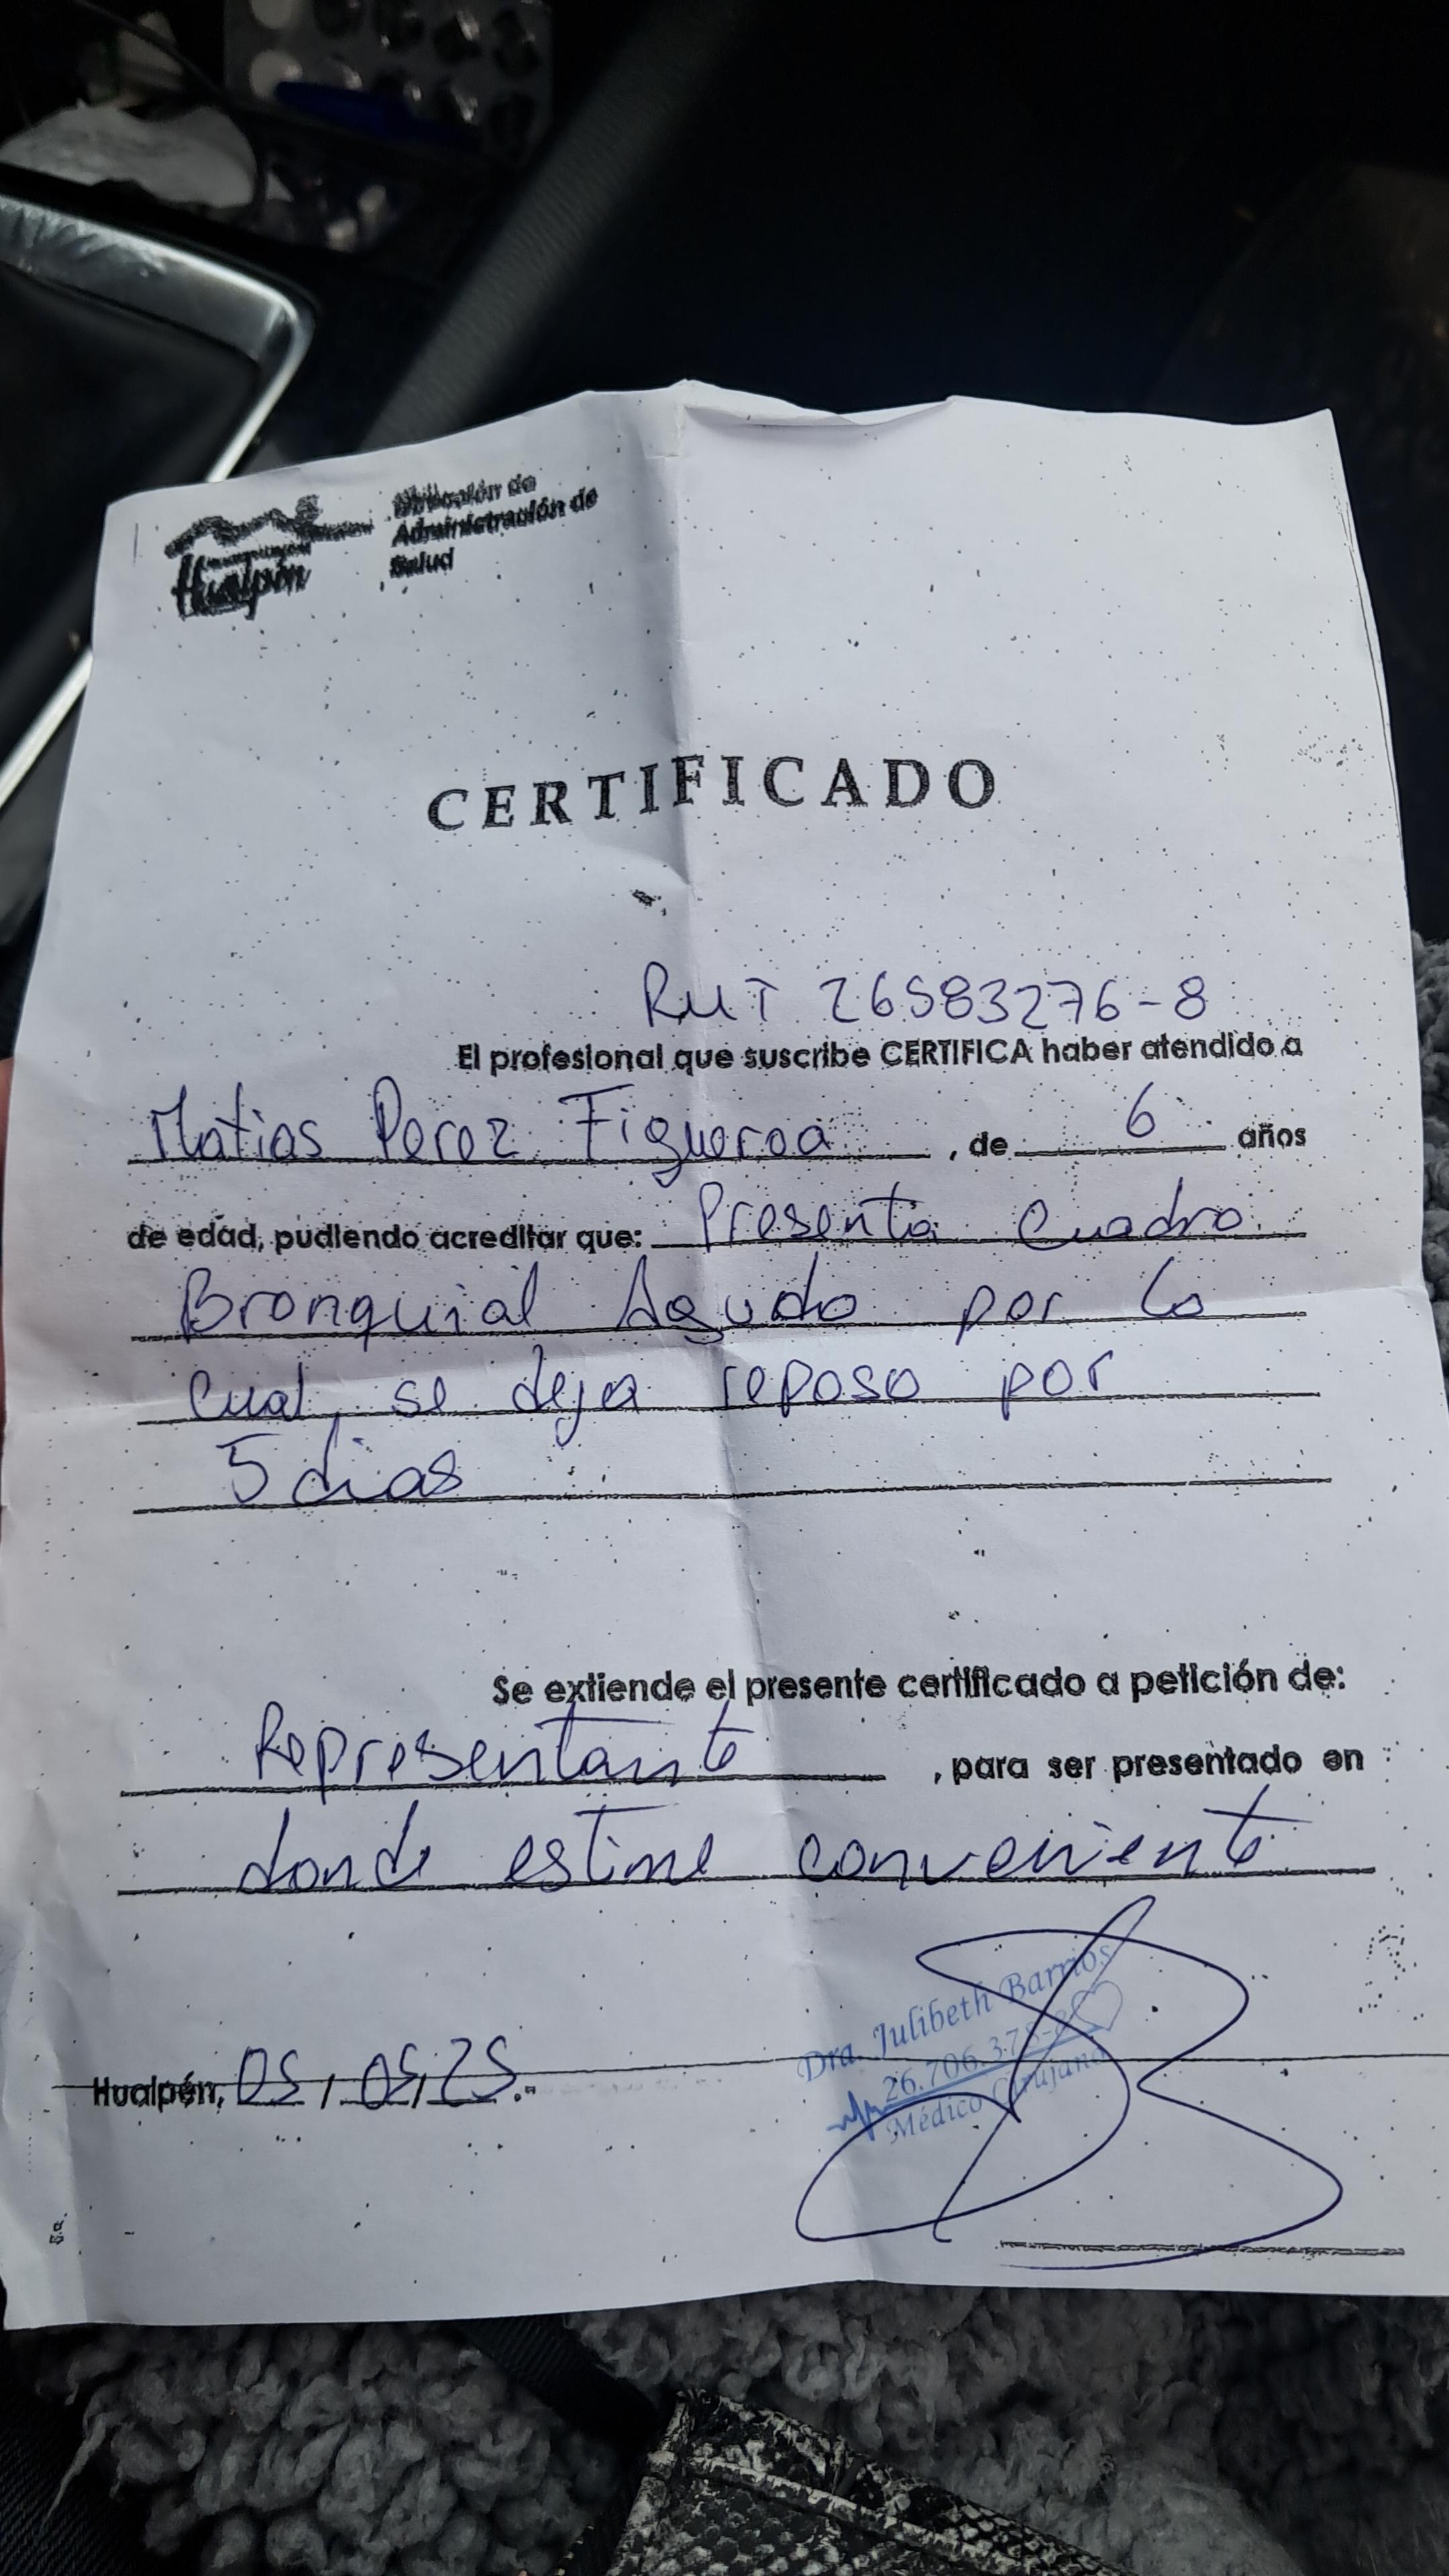 Hualpén
Dirección de
Administración de
Salud
CERTIFICADO
RUT 26583276-8
El profesional que suscribe CERTIFICA haber atendido a
Matias Perez Figueroa, de 6 años
de edad, pudiendo acreditar que: Presenta Cuadro
Bronquial Agudo por lo
cual, se deja reposo por
5 dias
Se extiende el presente certificado a petición de:
Representante, para ser presentado en
donde estime conveniente
Dra. Julibeth Barrios
26.706.378-
Médico Cirujano
Hualpén, 05, 05, 25.-